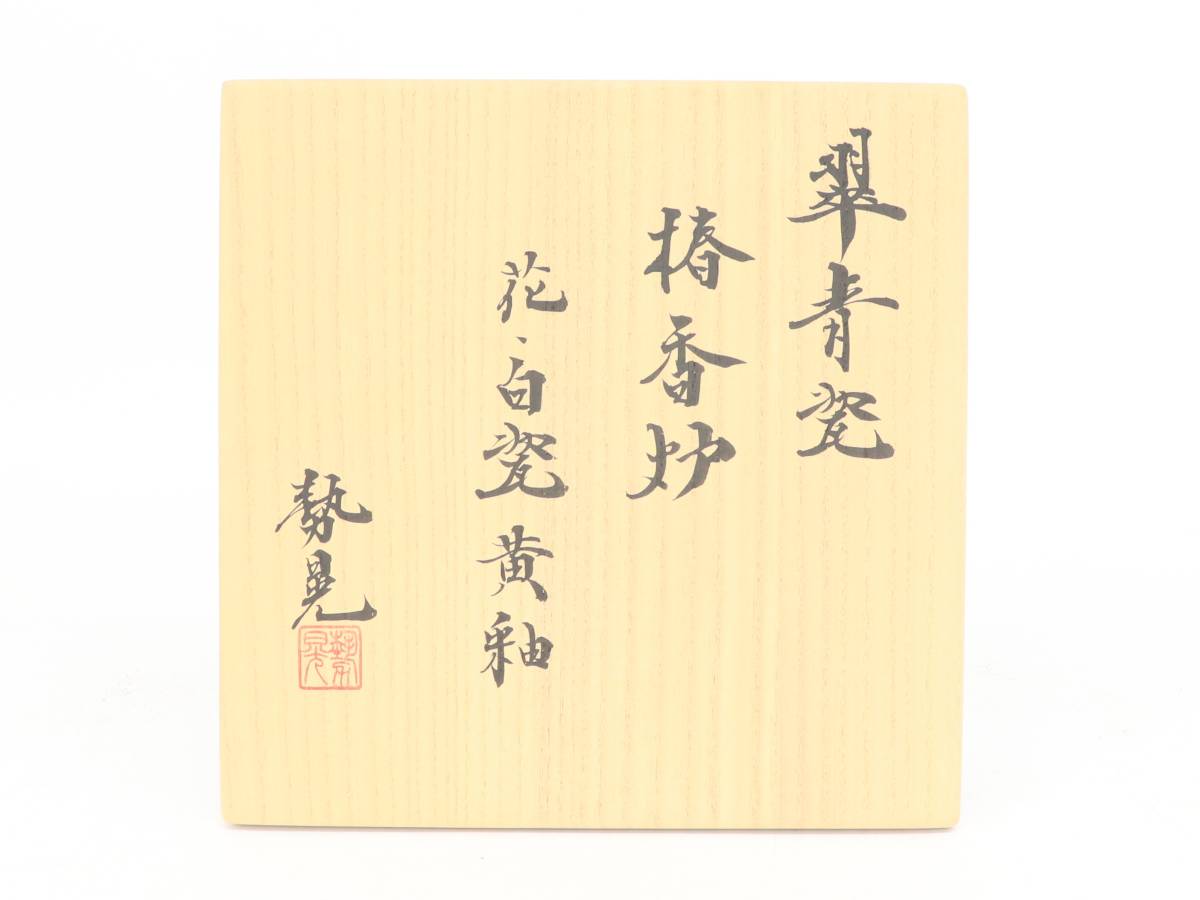 翠青瓷
椿香炉
花、白瓷黄釉
勢晃
勢晃